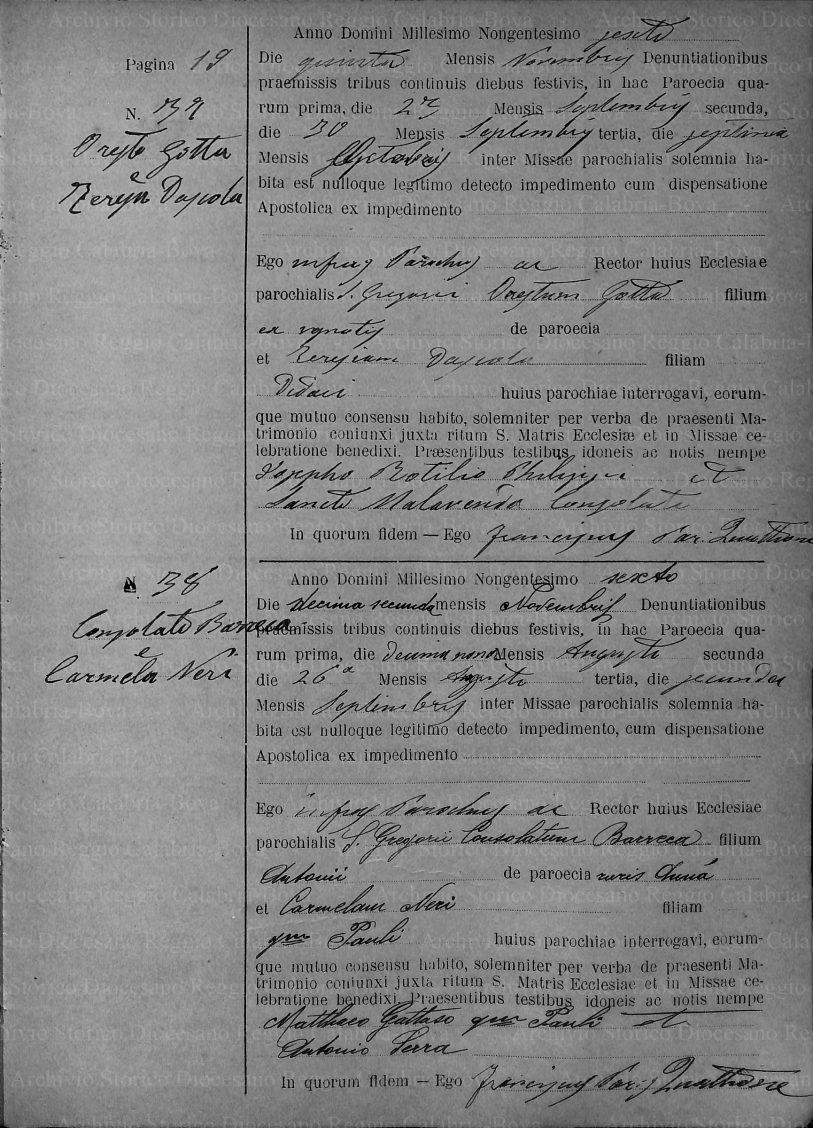 Pagina 19
Anno Domini Millesimo Nongentesimo sexto
Die quinta Mensis Novembris Denuntiationibus
praemissis tribus continuis diebus festivis, in hac Paroecia qua-
N. 37
rum prima, die 23 Mensis Septembris secunda,
die 30 Mensis Septembris tertia, die septima
Oreste Gotta
e
Teresa Dascola
Mensis Octobris inter Missae parochialis solemnia ha-
bita est nulloque legitimo detecto impedimento cum dispensatione
Apostolica ex impedimento
Ego infras Parochus ac Rector huius Ecclesiae
parochialis S. Gregorii Orestem Gotta filium
ex ignotis de paroecia
et Teresiam Dascola filiam
Didaci huius parochiae interrogavi, eorum-
que mutuo consensu habito, solemniter per verba de praesenti Ma-
trimonio coniunxi juxta ritum S. Matris Ecclesiæ et in Missae ce-
lebratione benedixi. Præsentibus testibus idoneis ac notis nempe
Rotilio Philippi et
Malavenda Consolati
In quorum fidem — Ego Franciscus Par: Quattrone
N. 38
Anno Domini Millesimo Nongentesimo sexto
Die decima secunda mensis Novembris Denuntiationibus
Consolato Barreca
e
Carmela Neri
praemissis tribus continuis diebus festivis, in hac Paroecia qua-
rum prima, die decima nona Mensis Augusti secunda
die 26a Mensis Augusti tertia, die secunda
Mensis Septembris inter Missae parochialis solemnia ha-
bita est nulloque legitimo detecto impedimento, cum dispensatione
Apostolica ex impedimento
Ego infras Parochus ac Rector huius Ecclesiae
parochialis S. Gregorii Consolatum Barreca filium
Antonii de paroecia
et Carmelam Neri filiam
qm Pauli huius parochiae interrogavi, eorum-
que mutuo consensu habito, solemniter per verba de praesenti Ma-
trimonio coniunxi juxta ritum S. Matris Ecclesiae et in Missae ce-
lebratione benedixi. Praesentibus testibus idoneis ac notis nempe
Matthaeo Gattuso qm Pauli et
Antonio Serra
In quorum fidem — Ego Franciscus Par: Quattrone